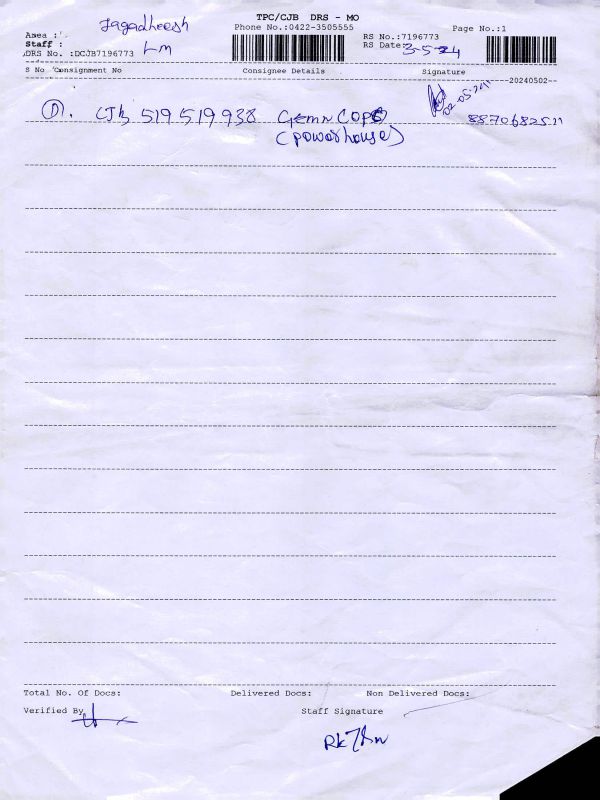 TPC/CJB DRS - MO
Jagadheesh
Phone No.:0422-3505555
Page No.:1
Area :
RS No.:7196773
Staff :
Lm
RS Date: 3-5-24
DRS No. :DCJB7196773
S No Consignment No Consignee Details Signature
20240502
①. CJB 519 519 938 Gemn COPS 8870682511
(powerhouse)
Total No. Of Docs: Delivered Docs: Non Delivered Docs:
Verified By Staff Signature